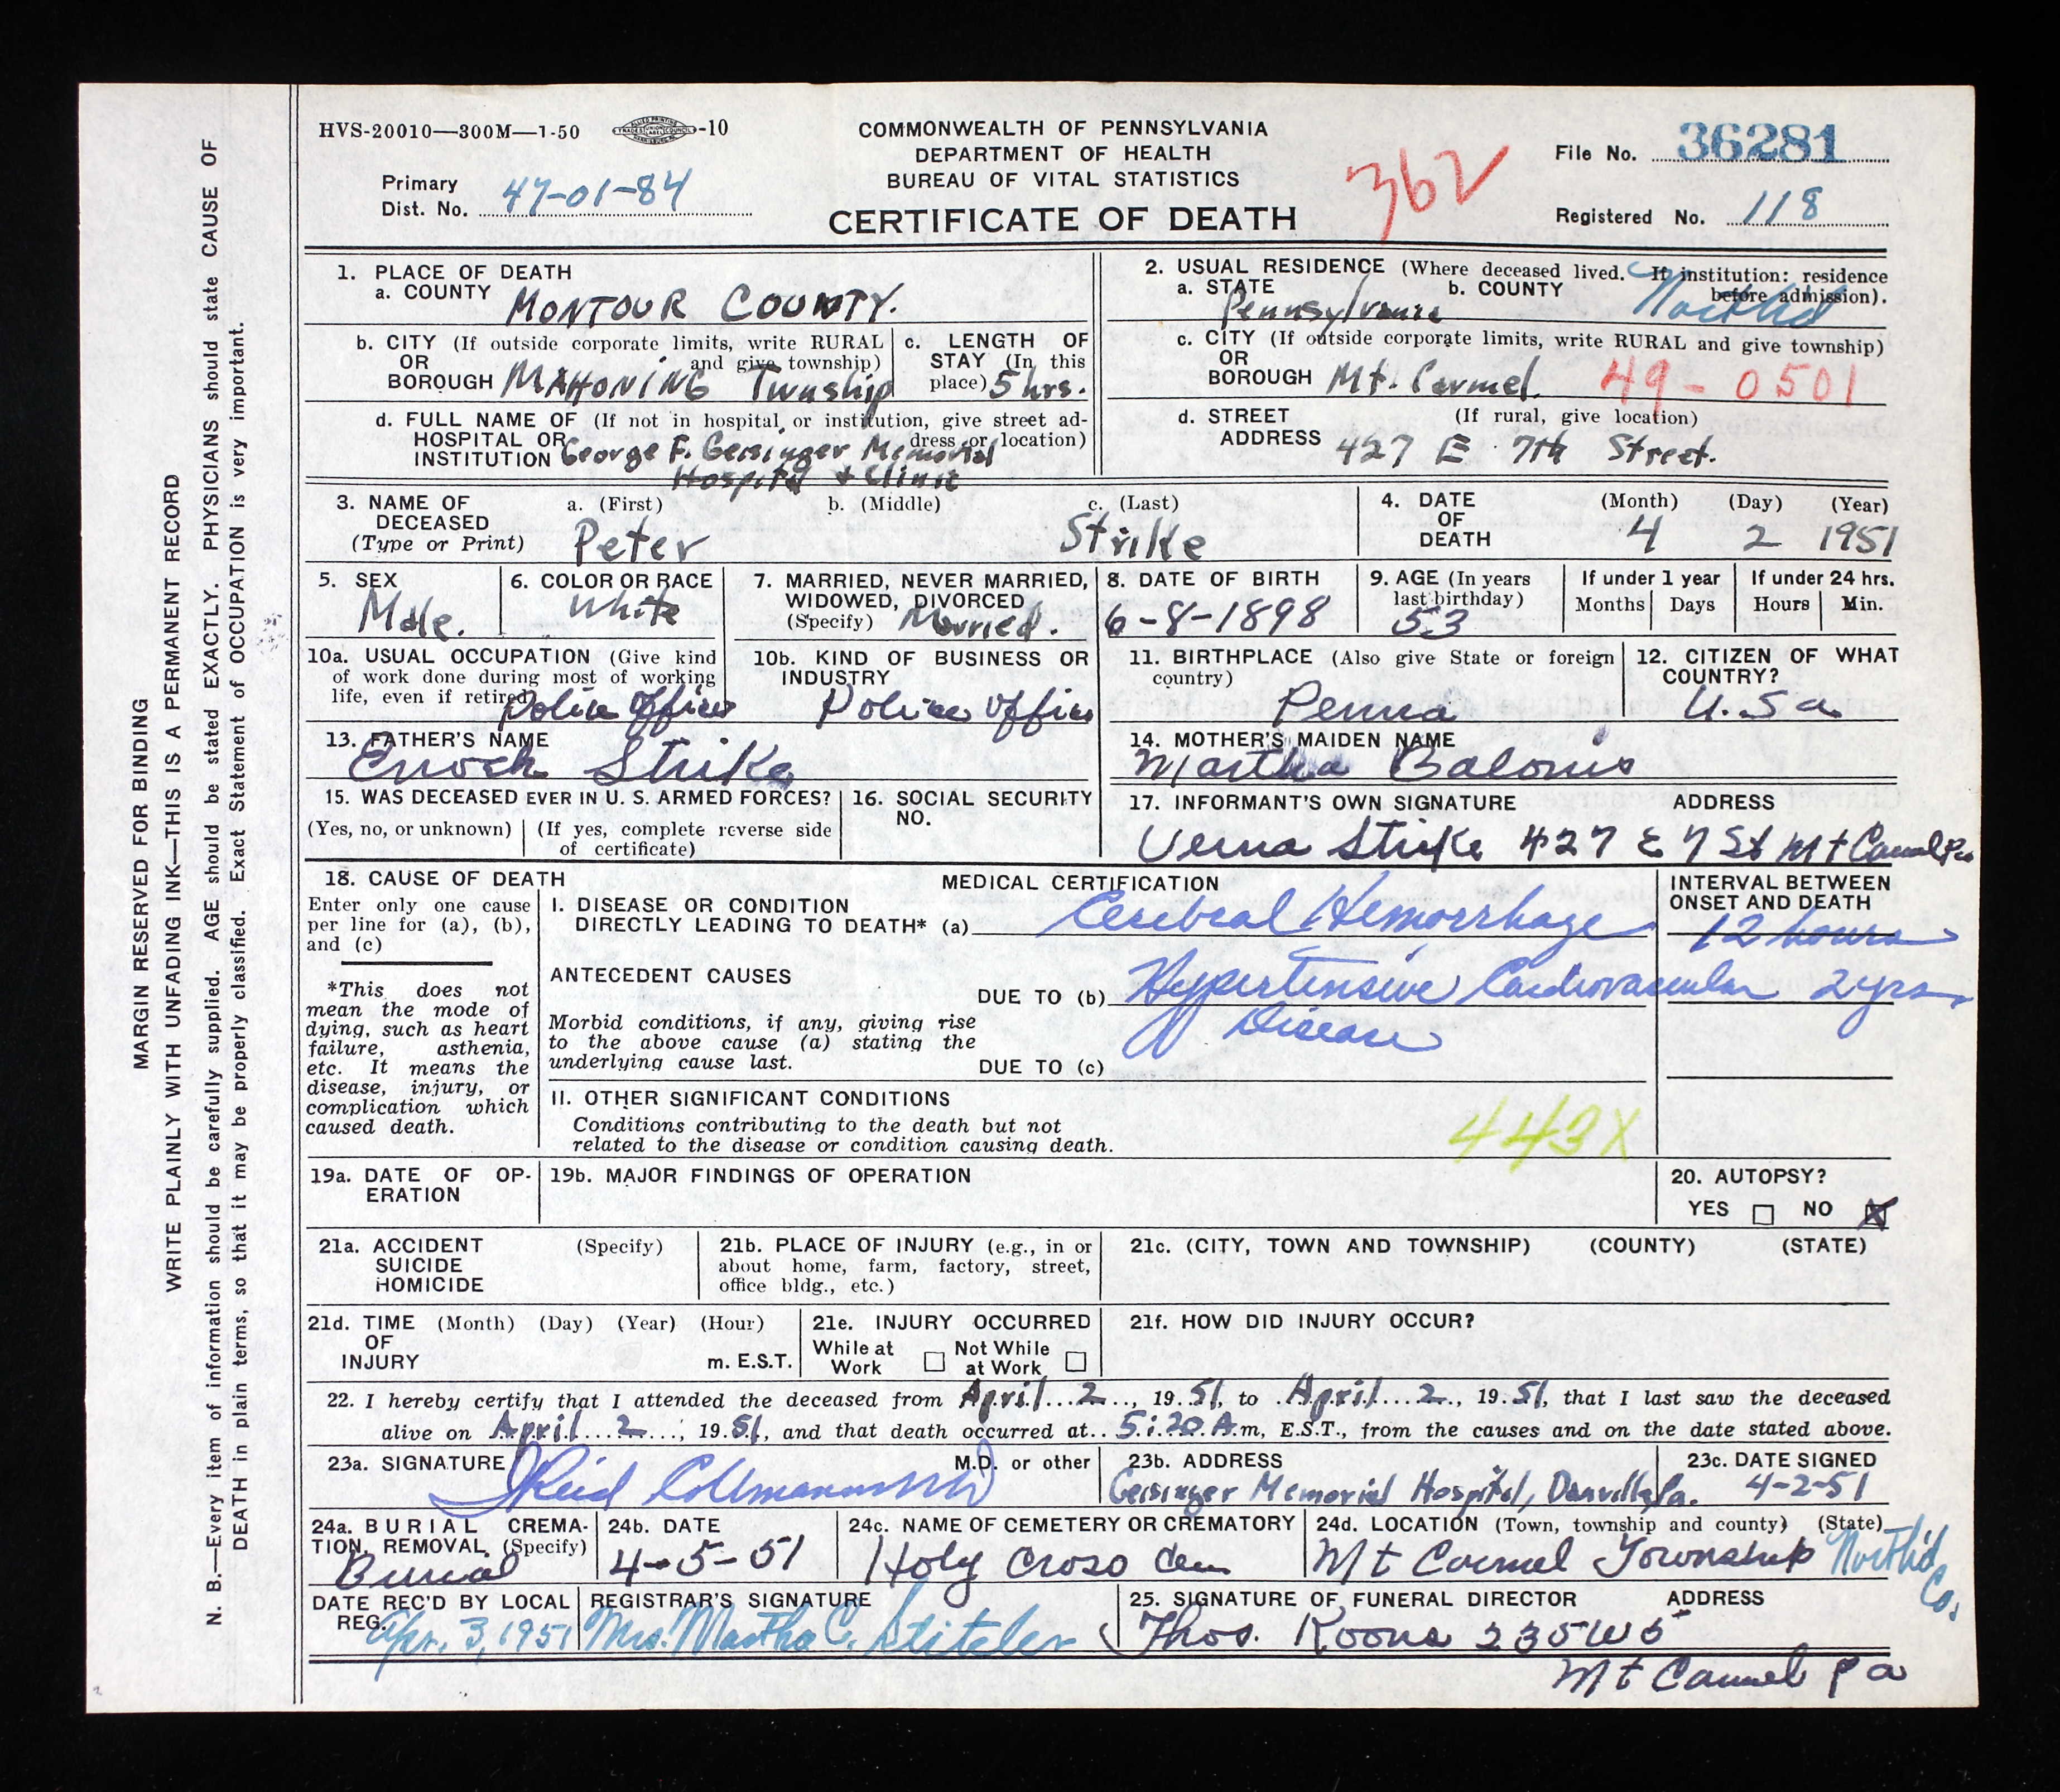 HVS-20010—300M—1-50 -10
COMMONWEALTH OF PENNSYLVANIA
DEPARTMENT OF HEALTH
BUREAU OF VITAL STATISTICS
CERTIFICATE OF DEATH
362
File No. 36281
Primary
Dist. No. 47-01-84
Registered No. 118
1. PLACE OF DEATH
a. COUNTY MONTOUR COUNTY.
b. CITY (If outside corporate limits, write RURAL
OR and give township)
BOROUGH MAHONING Twnship
c. LENGTH OF
STAY (In this
place) 5 hrs.
d. FULL NAME OF (If not in hospital or institution, give street ad-
HOSPITAL OR dress or location)
INSTITUTION George F. Geisinger Memorial
Hospital + Clinic
2. USUAL RESIDENCE (Where deceased lived. If institution: residence
before admission).
a. STATE b. COUNTY
Pennsylvania North'd
c. CITY (If outside corporate limits, write RURAL and give township)
OR
BOROUGH Mt. Carmel. 49-0501
d. STREET (If rural, give location)
ADDRESS 427 E 7th Street.
3. NAME OF
DECEASED
(Type or Print)
a. (First) b. (Middle) c. (Last)
Peter Strike
4. DATE
OF
DEATH
(Month) (Day) (Year)
4 2 1951
5. SEX
Male.
6. COLOR OR RACE
White
7. MARRIED, NEVER MARRIED,
WIDOWED, DIVORCED
(Specify) Married.
8. DATE OF BIRTH
6-8-1898
9. AGE (In years
last birthday)
53
If under 1 year
Months Days
If under 24 hrs.
Hours Min.
10a. USUAL OCCUPATION (Give kind
of work done during most of working
life, even if retired) Police Officer
10b. KIND OF BUSINESS OR
INDUSTRY
Police Officer
11. BIRTHPLACE (Also give State or foreign
country)
Penna
12. CITIZEN OF WHAT
COUNTRY?
U.S a
13. FATHER'S NAME
Enoch Strike
14. MOTHER'S MAIDEN NAME
Martha Balonis
15. WAS DECEASED EVER IN U. S. ARMED FORCES?
(Yes, no, or unknown) (If yes, complete reverse side
of certificate)
16. SOCIAL SECURITY
NO.
17. INFORMANT'S OWN SIGNATURE ADDRESS
Verna Strike 427 E 7 St Mt Carmel Pa
18. CAUSE OF DEATH
Enter only one cause
per line for (a), (b),
and (c)
*This does not
mean the mode of
dying, such as heart
failure, asthenia,
etc. It means the
disease, injury, or
complication which
caused death.
MEDICAL CERTIFICATION
I. DISEASE OR CONDITION
DIRECTLY LEADING TO DEATH* (a) Cerebral Hemorrhage
ANTECEDENT CAUSES
DUE TO (b) Hypertensive Cardiovascular
Disease
Morbid conditions, if any, giving rise
to the above cause (a) stating the
underlying cause last.
DUE TO (c)
INTERVAL BETWEEN
ONSET AND DEATH
12 hours
2 yrs.
II. OTHER SIGNIFICANT CONDITIONS
Conditions contributing to the death but not
related to the disease or condition causing death.
443X
19a. DATE OF OP-
ERATION
19b. MAJOR FINDINGS OF OPERATION
20. AUTOPSY?
YES NO X
21a. ACCIDENT (Specify)
SUICIDE
HOMICIDE
21b. PLACE OF INJURY (e.g., in or
about home, farm, factory, street,
office bldg., etc.)
21c. (CITY, TOWN AND TOWNSHIP) (COUNTY) (STATE)
21d. TIME (Month) (Day) (Year) (Hour)
OF
INJURY m. E.S.T.
21e. INJURY OCCURRED
While at Not While
Work at Work
21f. HOW DID INJURY OCCUR?
22. I hereby certify that I attended the deceased from April 2, 1951, to April 2, 1951, that I last saw the deceased
alive on April 2, 1951, and that death occurred at 5:20 A.m, E.S.T., from the causes and on the date stated above.
23a. SIGNATURE M.D. or other
23b. ADDRESS
Geisinger Memorial Hospital, Danville, Pa.
23c. DATE SIGNED
4-2-51
24a. BURIAL CREMA-
TION, REMOVAL (Specify)
Burial
24b. DATE
4-5-51
24c. NAME OF CEMETERY OR CREMATORY
Holy Cross Cem
24d. LOCATION (Town, township and county) (State)
Mt Carmel Township North'd
Co.
DATE REC'D BY LOCAL
REG. Apr. 3, 1951
REGISTRAR'S SIGNATURE
Mrs. Martha C. Stitzler
25. SIGNATURE OF FUNERAL DIRECTOR ADDRESS
Thos. Koons 235 W 5
Mt Carmel Pa
MARGIN RESERVED FOR BINDING
WRITE PLAINLY WITH UNFADING INK—THIS IS A PERMANENT RECORD
N. B.—Every item of information should be carefully supplied. AGE should be stated EXACTLY. PHYSICIANS should state CAUSE OF
DEATH in plain terms, so that it may be properly classified. Exact Statement of OCCUPATION is very important.